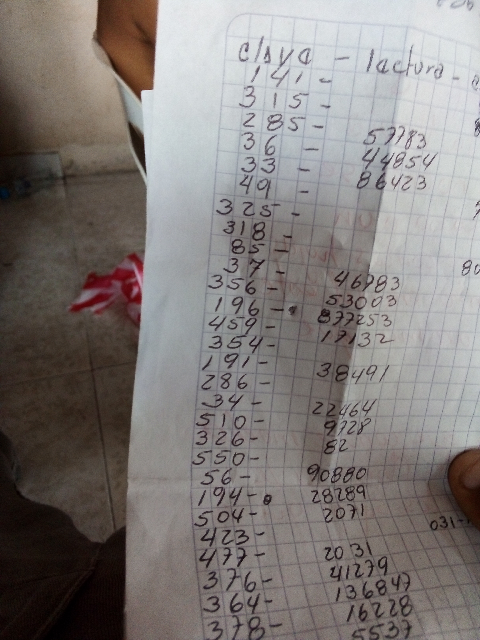 clave - factura -
141 -
315 -
285 -
36 - 57783
33 - 44854
49 - 86423
325 -
318 -
85 -
37 -
356 - 46783
196 - 53003
459 - 877253
354 - 17132
191 -
286 - 38491
34 -
510 - 22464
326 - 9728
550 - 82
56 - 90880
194 - 28289
504 - 2071
423 -
477 - 2031
376 - 41279
364 - 136847
378 - 16228
5537